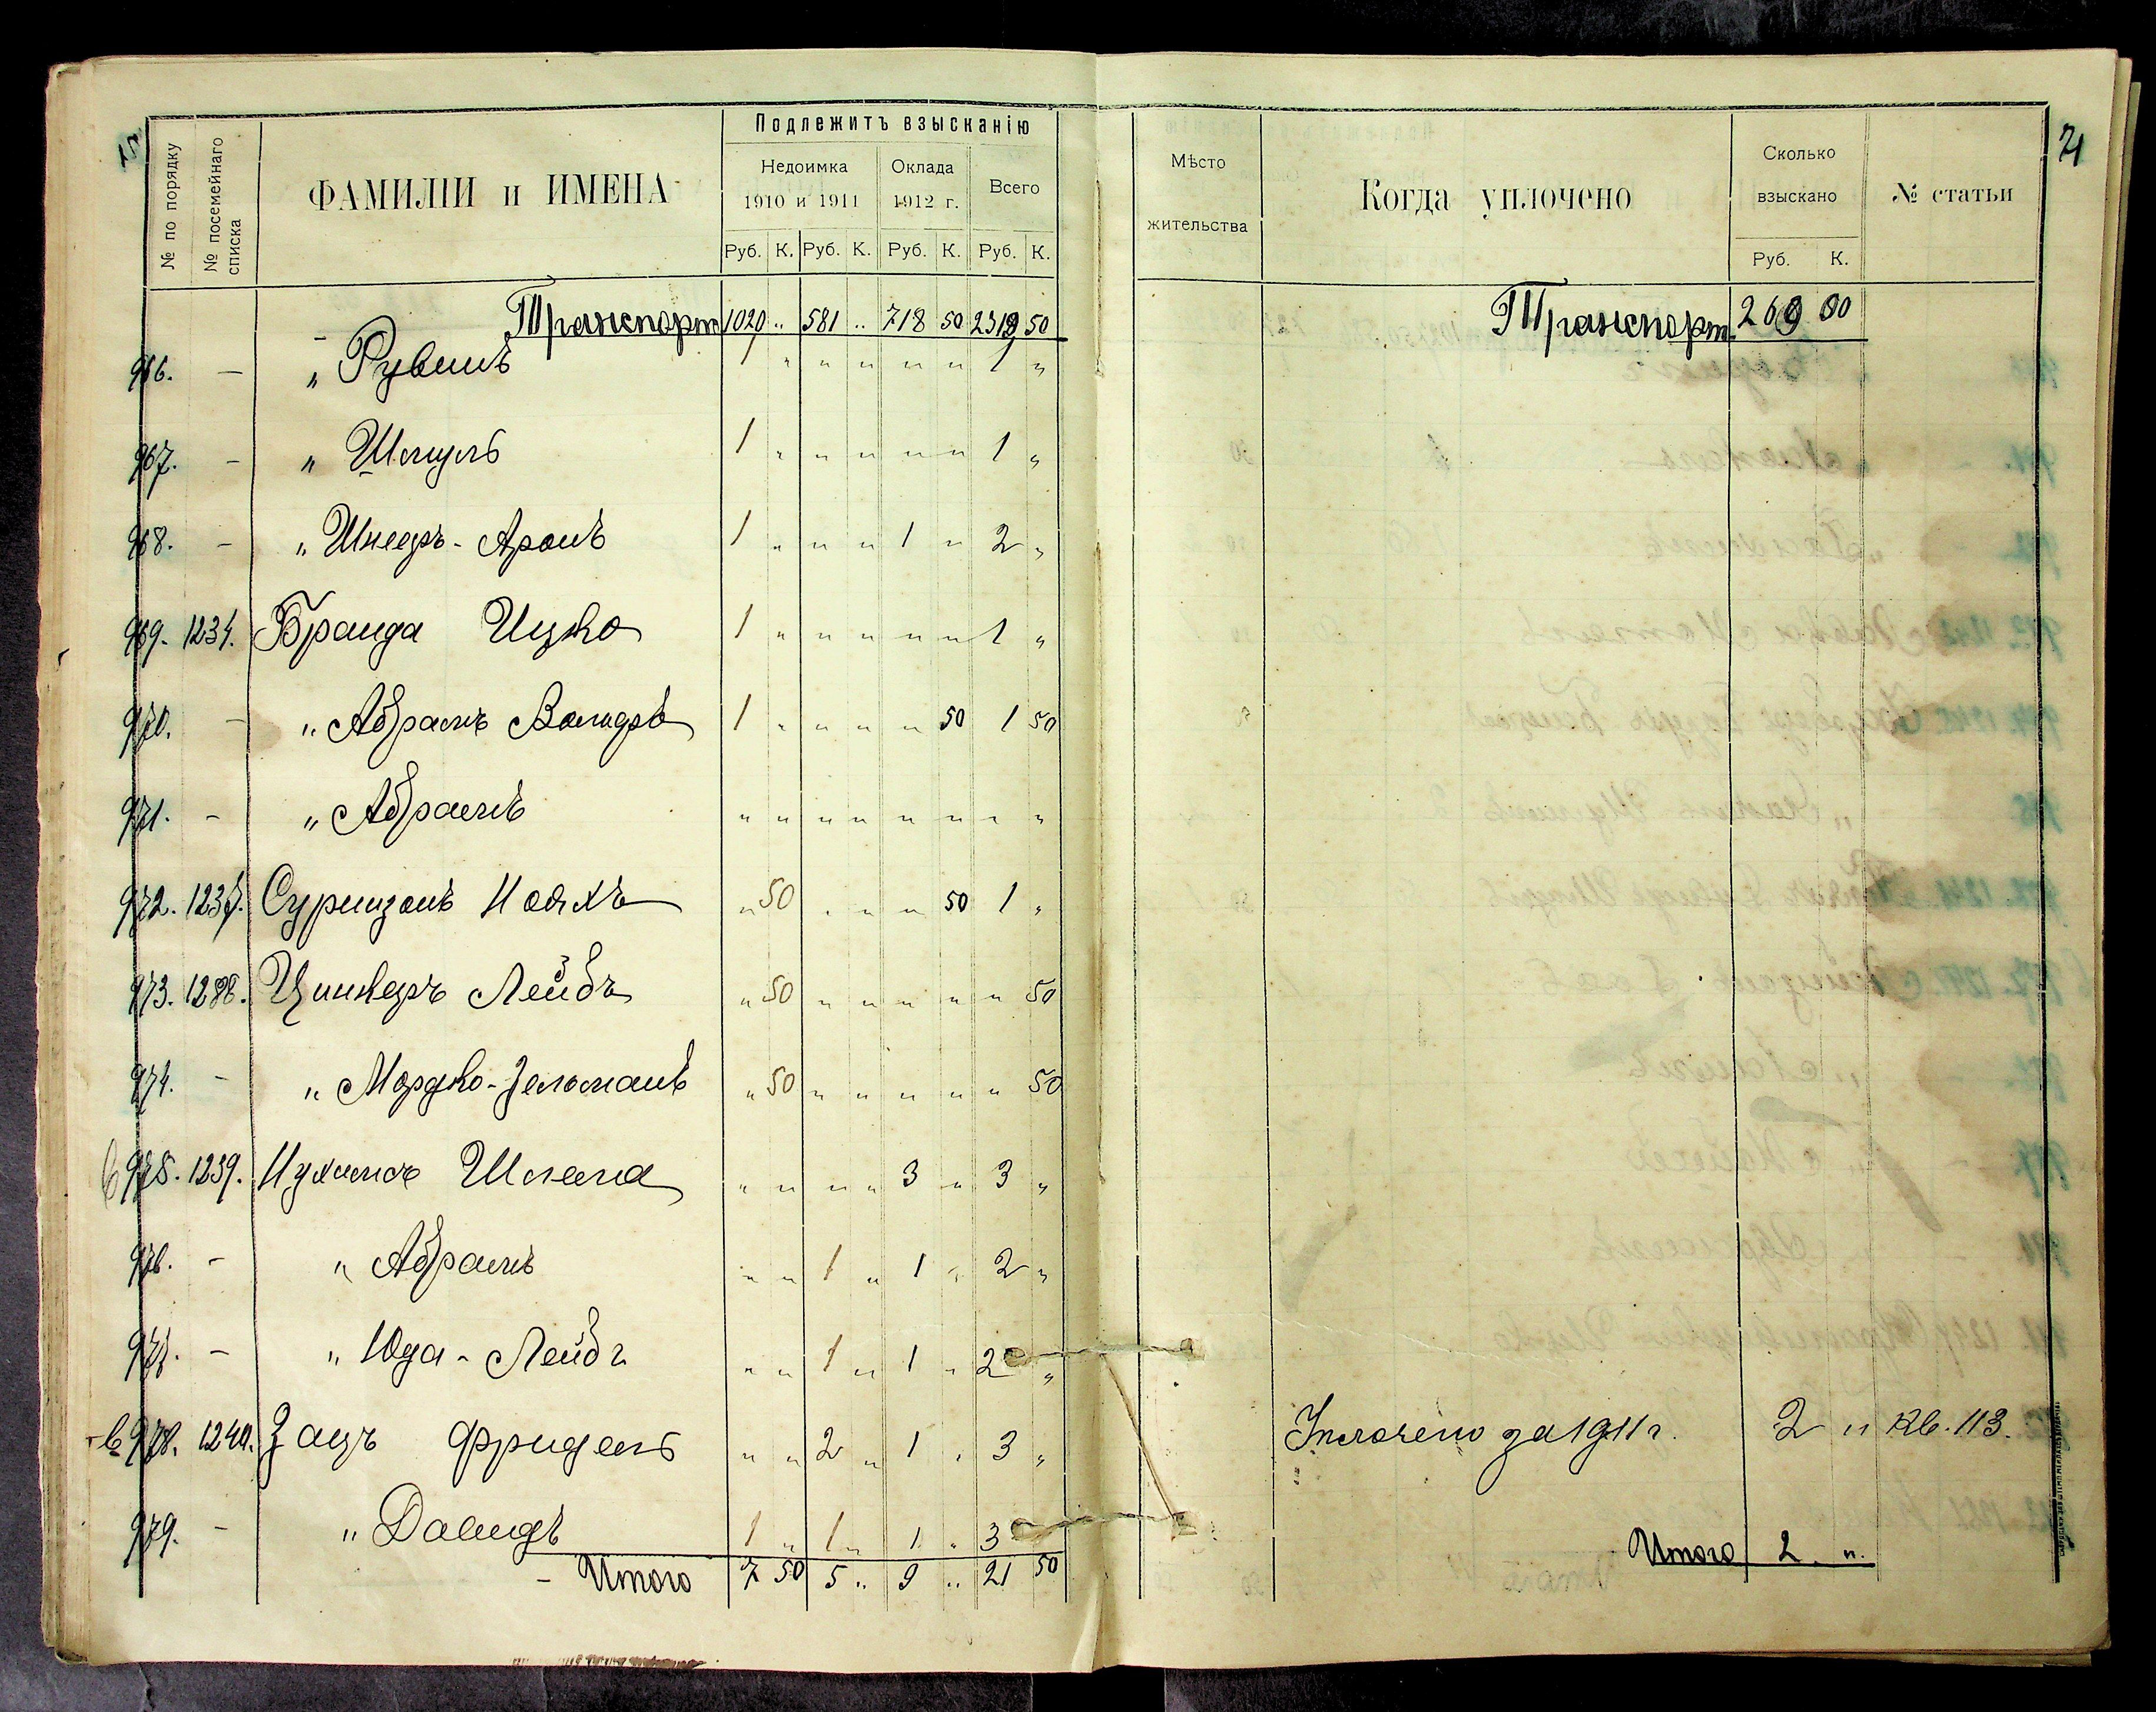 15
Подлежитъ взысканію
№ по порядку
№ посемейнаго списка
ФАМИЛІИ и ИМЕНА
Недоимка
1910 и 1911
Оклада
1912 г.
Всего
Руб. К. Руб. К. Руб. К. Руб. К.
Транспорт 1020 „ 581 „ 718 50 2319 50
966. — „ Рувинъ 1 „ „ „ „ „ 1 „
967. — „ Шмуль 1 „ „ „ „ „ 1 „
968. — „ Шнееръ-Аронъ 1 „ „ „ 1 „ 2 „
969. 1234. Бранда Ицко 1 „ „ „ „ „ 1 „
970. — „ Абрамъ Вольфъ 1 „ „ „ „ 50 1 50
971. — „ Абрамъ „ „ „ „ „ „ „ „
972. 1237. Сурицонъ Ноахъ „ 50 „ „ „ 50 1 „
973. 1238. Цинкеръ Лейбъ „ 50 „ „ „ „ „ 50
974. — „ Мордко-Зельманъ „ 50 „ „ „ „ „ 50
975. 1239. Нухимов Шлема „ „ „ „ 3 „ 3 „
976. — „ Абрамъ „ „ 1 „ 1 „ 2 „
977. — „ Юда-Лейбъ „ „ 1 „ 1 „ 2 „
в 978. 1240. Зацъ Фридель „ „ 2 „ 1 „ 3 „
979. — „ Давидъ 1 „ 1 „ 1 „ 3
Итого 7 50 5 „ 9 „ 21 50
21
Мѣсто
жительства
Когда уплочено
Сколько
взыскано
Руб. К.
№ статьи
Транспорт 269 00
Уплочено за 1911 г. 2 „ Кв. 113.
Итого 2 „